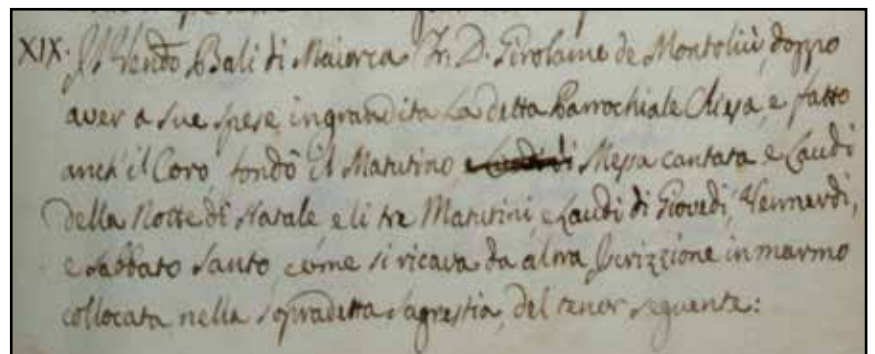 XIX. Il Vendo Bali di Maiorca Fr. D. Girolame de Montoliù, doppo
aver a sue spese ingrandita la detta Parrochiale Chiesa, e fatto
anch'il Coro, fondò il Matutino, Messa cantata e Laudi
della Notte di Natale, e li tre Matutini, e Laudi di Giovedì, Vennerdì,
e Sabbato Santo, come si ricava da altra Iscrizzione in marmo
collocata nella sopradetta Sagrestia, del tenor seguente: